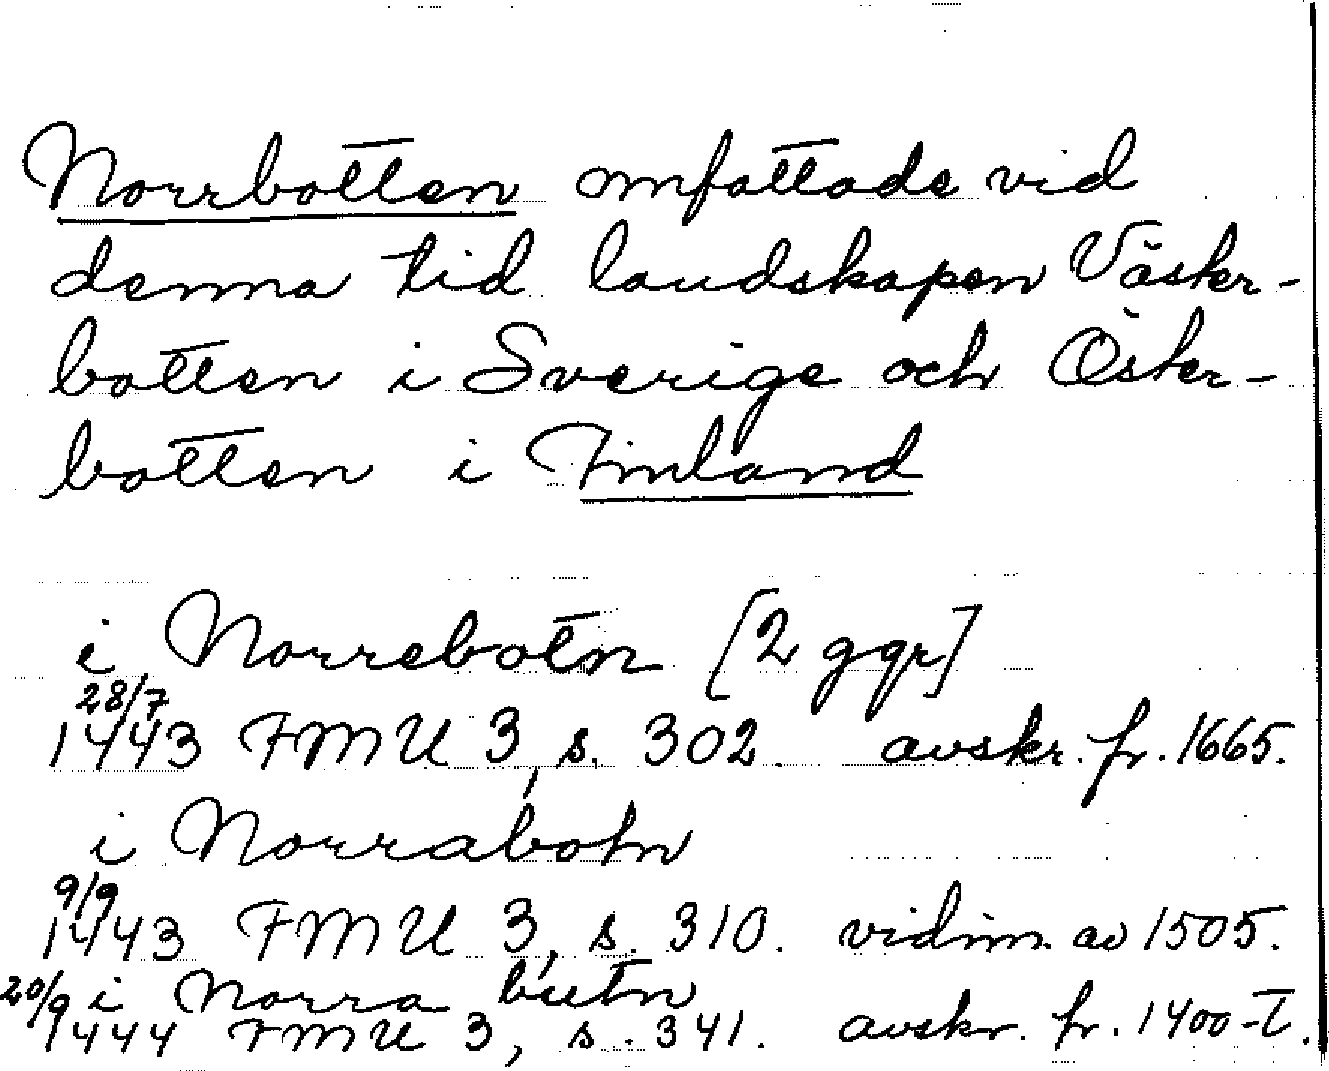 Norrbotten omfattade vid
denna tid landskapen Väster-
botten i Sverige och Öster-
botten i Finland
i Norrebotn [2 ggr]
28/7
1443 FMU 3, s. 302. avskr. fr. 1665.
i Norrabotn
9/9
1443 FMU 3, s. 310. vidim. av 1505.
20/9 i Norra butn
1444 FMU 3, s. 341. avskr. fr. 1400-t.